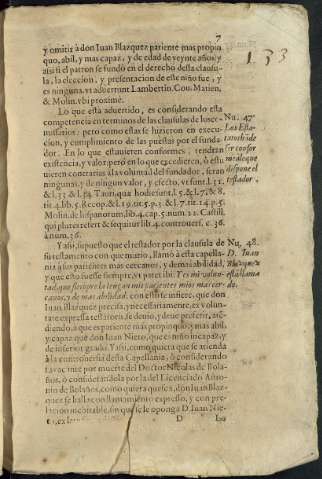 7
133
y omitir à don Iuan Blazquez pariente mas propin
quo, abil, y mas capaz, y de edad de veynte años; y
assi si el patron se fundò en el derecho desta clausu-
la, la eleccion, y presentacion de este niño fue, y
es ninguna, vt aduertunt Lambertin. Cou. Matien,
& Molin. vbi proximè.
Lo que està aduertido, es considerando esta
competencia en terminos de las clausulas de los ce-
missarios: pero como estas se hizieron en execu-
cion, y cumplimiento de las puestas por el funda-
dor. En lo que estuuieren conformes, tendràn
existencia, y valor: però en lo que excedieren, ò estu
uieren contrarias à la voluntad del fundador, seràn
ningunas, y de ningun valor, y efecto, vt sunt l. 31.
& l. 33. & l. 84. Tauri, quæ hodie sunt l. 5. & l. 7. & 8.
tit. 4. lib. 5. Recop. & l. 19. tit. 5. p. 3. & l. 7. tit. 14. p. 5.
Molin. de hispanorum, lib. 4. cap. 5. num. 22. Castill.
qui plures refert & sequitur lib. 4. controuers. c. 36.
à num. 36.
Nu. 47
Las Esta-
ser confor
me a lo que
dispone el
testador.
Y assi, supuesto que el testador por la clausula de
su testamento con que murio, llamò a esta capella-
nia à sus parientes mas cercanos, y de mas abilidad,
y que esto fuesse siempre, vt patet ibi: Y es mi volun-
tad, que siempre la tengan mis parientes mios mas cer-
canos, y de mas abilidad, con esto se infiere, que don
Iuan Blazquez precisa, y necessariamente, es volun-
tate expressa testatoris, se deuio, y deue preferir, at-
diendo à que es pariente mas propinquo, y mas abil,
y capaz que don Iuan Nieto, que es niño incapaz, y
de inferior grado. Y assi, como quiera que se atienda
à la controuersia desta Capellania, ò considerando
la vacante por muerte del Doctor Nicolas de Bola-
ños, ò considerandola por la del Licenciado Anto-
nio de Bolaños, como quiera que sea, don Iuan Blaz-
quez se halla con llamamiento expresso, y con pre-
lacion indubitable, sin que se le oponga D. Iuan Nie-
Nu. 48.
D. Iuan
Blazquez
està llama
do.
D